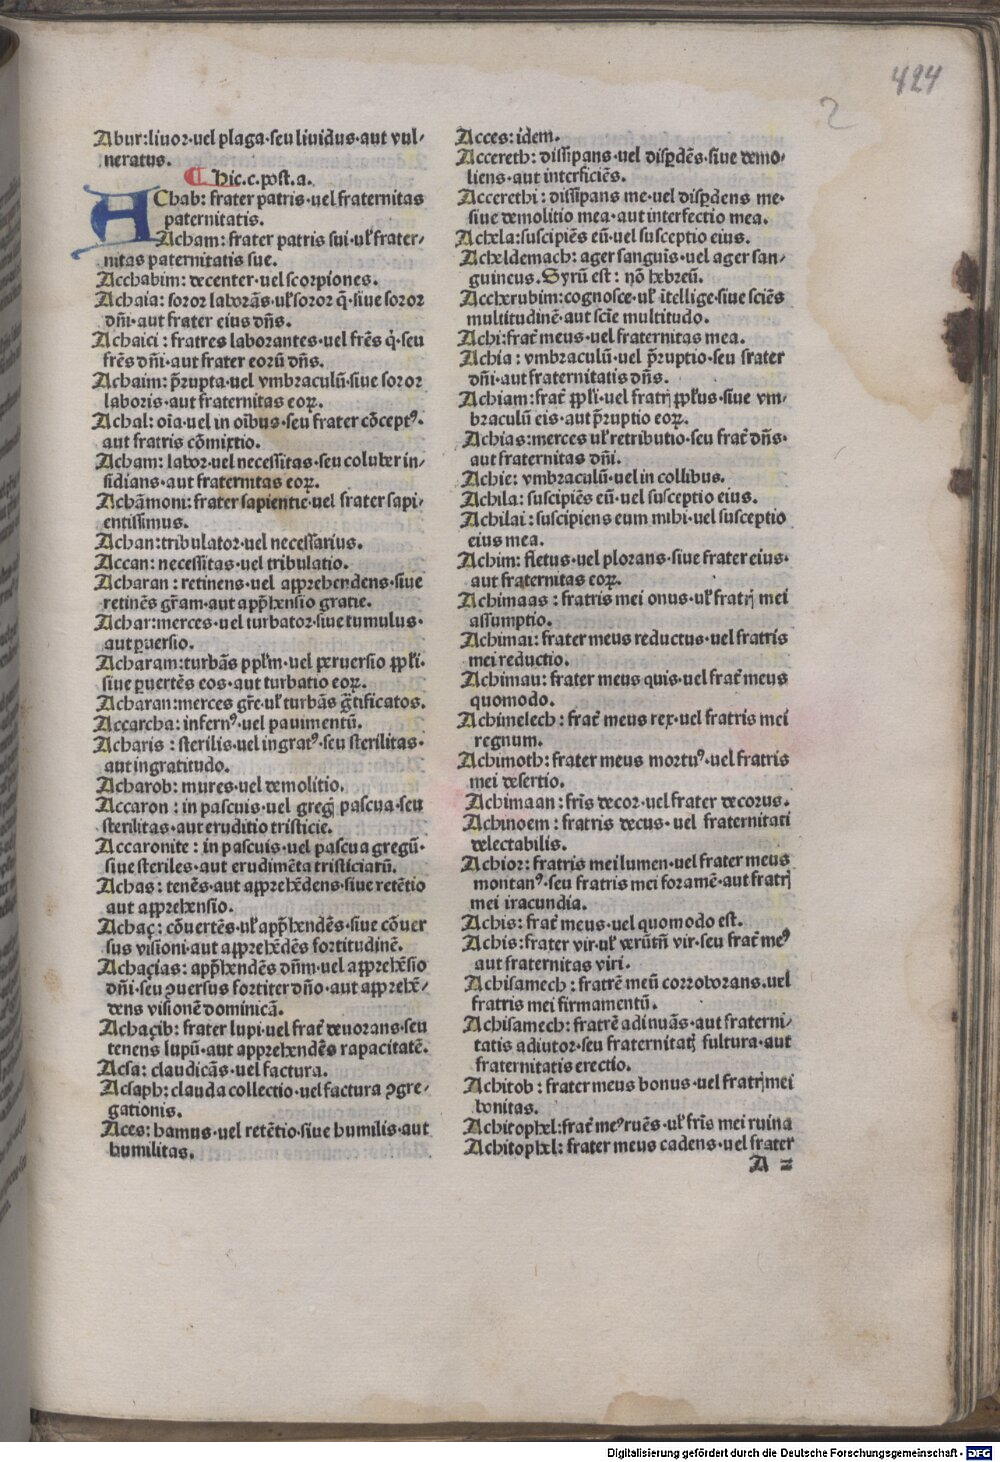 424
2
Abur:liuor·uel plaga·seu liuidus·aut vul/
neratus.
Hic.c.post.a.
AChab: frater patris·uel fraternitas
paternitatis.
Acham: frater patris sui·ul frater/
nitas paternitatis sue.
Acchabim: decenter·uel scorpiones.
Achaia: soror laborãs·ul soror q̃·siue soror
dñi·aut frater eius dñs.
Achaici: fratres laborantes·uel frẽs q̇·seu
frẽs dñi·aut frater eorũ dñs.
Achaim: p̃rupta·uel vmbraculũ·siue soror
laboris·aut fraternitas eoꝝ.
Achal: oĩa·uel in oĩbus·seu frater cõceptꝰ·
aut fratris cõmixtio.
Acham: labor·uel necessitas·seu coluber in/
sidians·aut fraternitas eoꝝ.
Achãmoni: frater sapientie·uel frater sapi/
entissimus.
Achan:tribulator·uel necessarius.
Accan: necessitas·uel tribulatio.
Acharan: retinens·uel apprehendens·siue
retinẽs gr̃am·aut app̃hensio gratie.
Achar:merces·uel turbator·siue tumulus·
aut ꝑuersio.
Acharam:turbãs pplm̃·uel peruersio ppl̃i·
siue ꝑuertẽs eos·aut turbatio eoꝝ.
Acharan:merces gr̃e·ul turbãs gr̃tificatos.
Accarcha: infernꝰ·uel pauimentũ.
Acharis: sterilis·uel ingratꝰ·seu sterilitas·
aut ingratitudo.
Acharob: mures·uel demolitio.
Accaron: in pascuis·uel greg̃ pascua·seu
sterilitas·aut eruditio tristicie.
Accaronite: in pascuis·uel pascua gregũ·
siue steriles·aut erudimẽta tristiciarũ.
Achas: tenẽs·aut apprehẽdens·siue retẽtio
aut apprehensio.
Achaç: cõuertẽs·ul app̃hendẽs·siue cõuer
sus visioni·aut apprehẽdẽs fortitudinẽ.
Achaçias: app̃hendẽs dñm·uel apprehẽsio
dñi·seu ꝯuersus fortiter dño·aut apprehẽ/
dens visionẽ dominicã.
Achaçib: frater lupi·uel frat̃ deuorans·seu
tenens lupũ·aut apprehendẽs rapacitatẽ.
Acsa: claudicãs·uel factura.
Acsaph: clauda collectio·uel factura ꝯgre/
gationis.
Aces: hamus·uel retẽtio·siue humilis·aut
humilitas.
Acces: idem.
Accereth: dissipans·uel disꝑdẽs·siue demo/
liens·aut interficiẽs.
Accerethi: dissipans me·uel disꝑdens me·
siue demolitio mea·aut interfectio mea.
Achela:suscipiẽs eũ·uel susceptio eius.
Acheldemach: ager sanguis·uel ager san/
guineus.Syrũ est: nõ hebreũ.
Accherubim:cognosce·ul ĩtellige·siue sciẽs
multitudinẽ·aut scĩe multitudo.
Achi:frat̃ meus·uel fraternitas mea.
Achia: vmbraculũ·uel p̃ruptio·seu frater
dñi·aut fraternitatis dñs.
Achiam: frat̃ ppl̃i·uel fratrꝭ pplũs·siue vm/
braculũ eis·aut p̃ruptio eoꝝ.
Achias:merces ul retributio·seu frat̃ dñs·
aut fraternitas dñi.
Achie: vmbraculũ·uel in collibus.
Achila: suscipiẽs eũ·uel susceptio eius.
Achilai: suscipiens eum mihi·uel susceptio
eius mea.
Achim: fletus·uel plorans·siue frater eius·
aut fraternitas eoꝝ.
Achimaas: fratris mei onus·ul fratrꝭ mei
assumptio.
Achimai: frater meus reductus·uel fratris
mei reductio.
Achimau: frater meus quis·uel frat̃ meus
quomodo.
Achimelech: frat̃ meus rex·uel fratris mei
regnum.
Achimoth: frater meus mortuꝰ·uel fratris
mei desertio.
Achimaan: fr̃is decor·uel frater decorus.
Achinoem: fratris decus·uel fraternitati
delectabilis.
Achior: fratris mei lumen·uel frater meus
montanꝰ·seu fratris mei foramẽ·aut fratrꝭ
mei iracundia.
Achis: frat̃ meus·uel quomodo est.
Achis:frater vir·ul uerũtñ vir·seu frat̃ meꝰ
aut fraternitas viri.
Achisamech: fratrẽ meũ corroborans.uel
fratris mei firmamentũ.
Achisamech: fratrẽ adinuãs·aut fraterni/
tatis adiutor·seu fraternitatꝭ fultura·aut
fraternitatis erectio.
Achitob: frater meus bonus·uel fratrꝭ mei
bonitas.
Achitophel:frat̃ meꝰ ruẽs·ul fr̃is mei ruina
Achitophel: frater meus cadens·uel frater
A 2
Digitalisierung gefördert durch die Deutsche Forschungsgemeinschaft - DFG